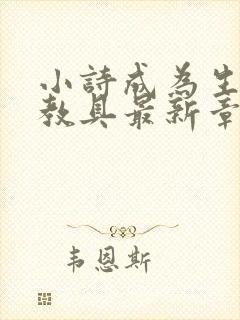 小詩成為生
教具最新章
韦恩斯